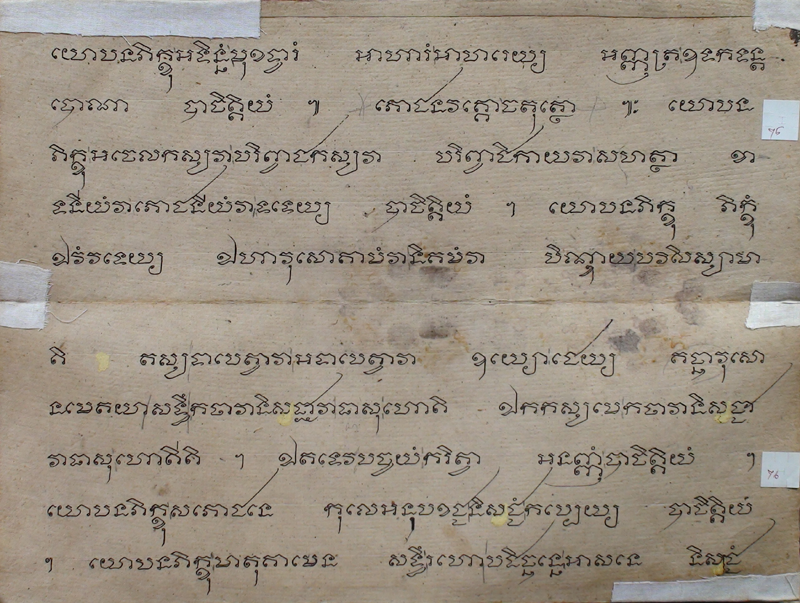 យោបនភិក្ខុអទិន្នំមុខទ្វារំ អាហារំអាហារេយ្យ អញ្ញត្រឧទកទន្ត
បោណា បាចិត្តិយំ ៕ ភោជនវគ្គោចតុត្ថោ ៕ះ យោបន
76
ភិក្ខុអចេលកស្សវាបរិព្វាជកស្សវា បរិព្វាជិកាយវាសហត្ថា ខា
ទនីយំវាភោជនីយំវាទទេយ្យ បាចិត្តិយំ ។ យោបនភិក្ខុ ភិក្ខុំ
ឯវំវទេយ្យ ឯហាវុសោគាមំវានិគមំវា បិណ្ឌាយបវិសិស្សាមា
តិ តស្សទាបេត្វាវាអទាបេត្វាវា ឧយ្យោជេយ្យ គច្ឆាវុសោ
នមេតយាសទ្ធឹកថាវានិសជ្ជាវាផាសុហោតិ ឯកកស្សមេកថាវានិសជ្ជា
វាផាសុហោតីតិ ។ ឯតទេវបច្ចយំករិត្វា អនញ្ញំបាចិត្តិយំ ។
76
យោបនភិក្ខុសភោជនេ កុលេអនុបខជ្ជនិសជ្ជំកប្បេយ្យ បាចិត្តិយំ
។ យោបនភិក្ខុមាតុគាមេន សទ្ធឹរហោបដិច្ឆន្នេអាសនេ និសជ្ជំ